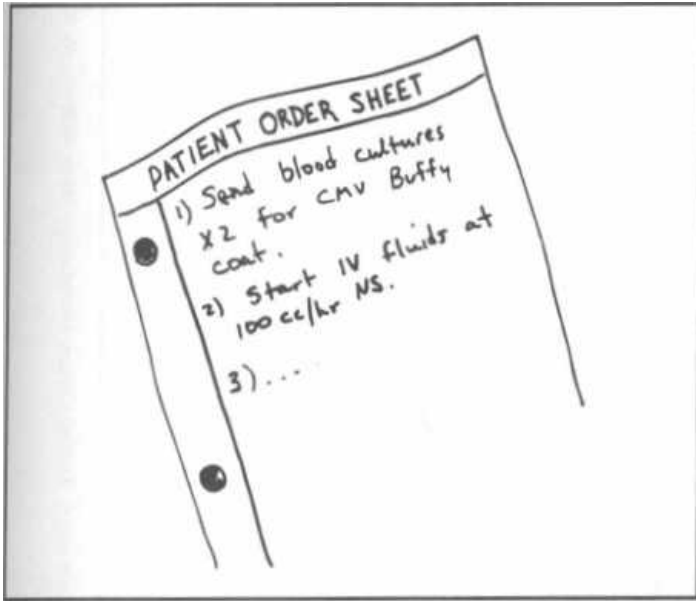 PATIENT ORDER SHEET
1) Send blood cultures
X2 for CMV Buffy
coat.
2) Start IV fluids at
100 cc/hr NS.
3)....